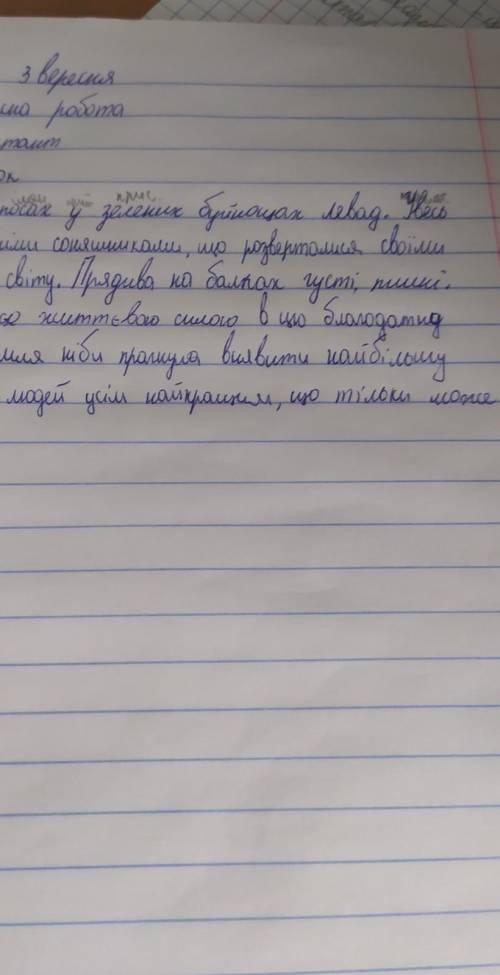 3 вересня
сна робота
тант
ок
прис.
посах у зелених буйнощах левад. Увесь
іми соняшниками, що розверталися своїми
світу. Прядива на балках густі, пишні.
ю життєвою силою в цю благодатну
мля ніби прагнула виявити найбільшу
людей усім найкращим, що тільки може